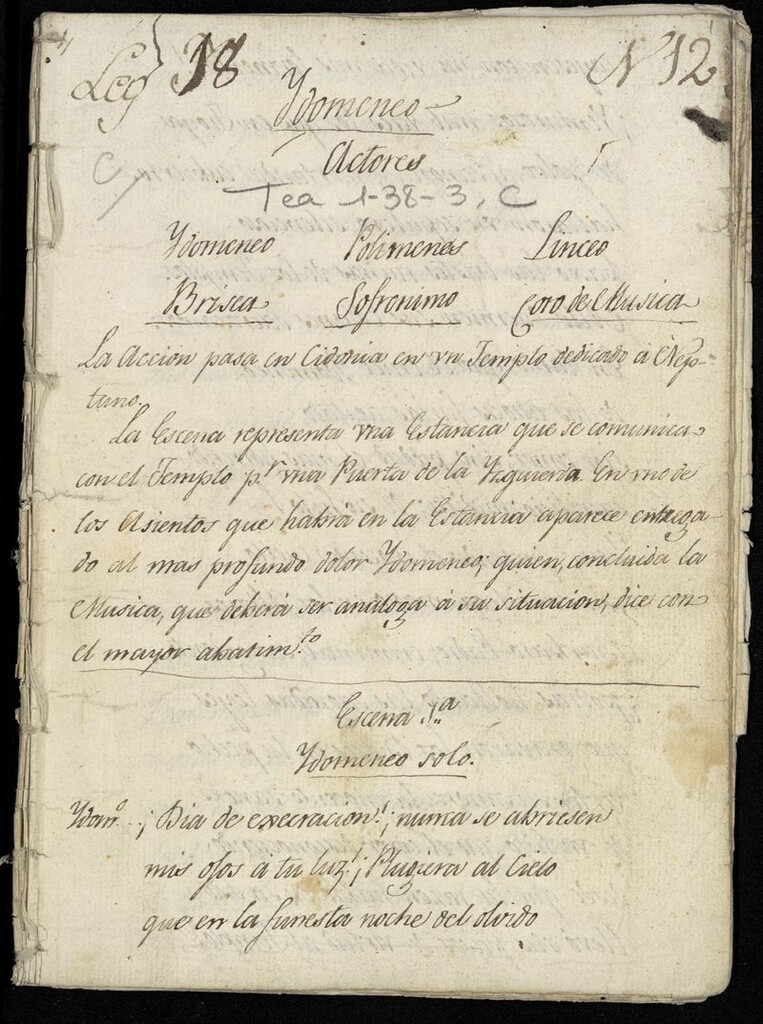 Leg 38 N 12
Ydomeneo
Actores
Tea 1-38-3, C
Ydomeneo Polimenes Linceo
Brisea Sofronimo Coro de Musica
La Accion pasa en Cidonia en vn Templo dedicado á Nep-
tuno.
La Escena representa vna Estancia que se comunica
con el Templo p.r vna Puerta de la Yzquierda. En vno de
los Asientos que habrá en la Estancia aparece entrega-
do al mas profundo dolor Ydomeneo; quien, concluida la
Musica, que deberá ser análoga á su situacion, dice con
el mayor abatim.to
Escena 1.a
Ydomeneo solo.
Ydom.o ¡Dia de execracion! ¡nunca se abriesen
mis ojos á tu luz! ¡Plugiera al Cielo
que en la funesta noche del olvido